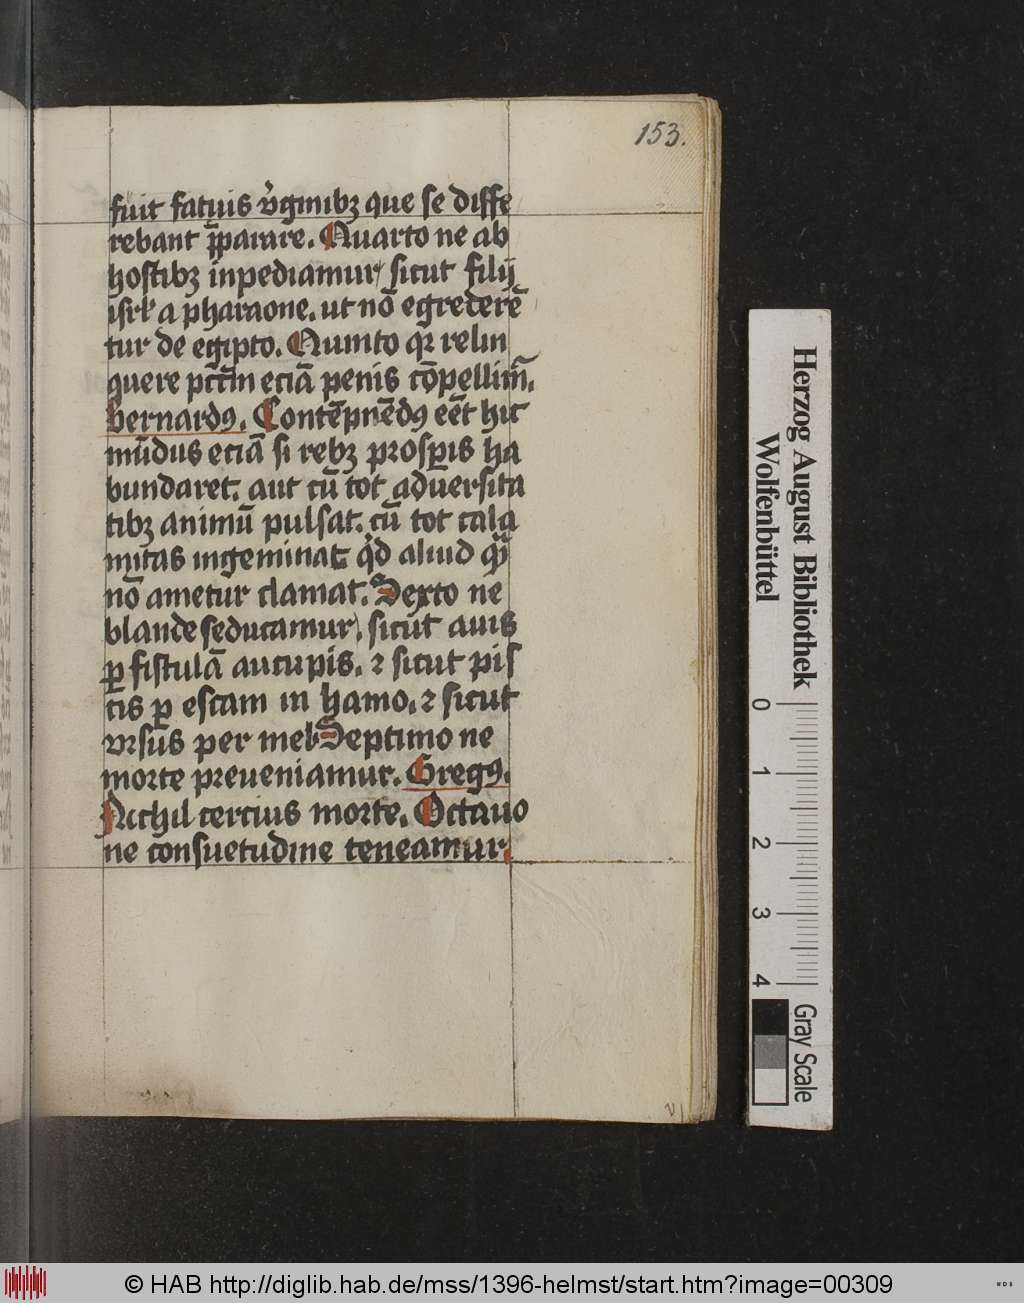 153.
fuit fatuis v̉ginibꝫ que se diffe
rebant p̄parare. Quarto ne ab
hostibꝫ inpediamur sicut filij
isrl̓ a pharaone. ut nō egrederē
tur de egipto. Quinto qꝛ relin
quere pctm̄ eciā penis cōpellim̄.
bernardꝰ. Contēpnēdꝰ eēt hic
mūdus eciā si rebꝫ prosꝑis ha
bundaret. aut cū tot aduersita
tibꝫ animū pulsat. cū tot cala
mitas ingeminat qͥd aliud qͣꝫ
nō ametur clamat. Sexto ne
blande seducamur. sicut auis
ꝑ fistulā aucupis. ⁊ sicut pis
cis ꝑ escam in hamo. ⁊ sicut
vrsus per mel Septimo ne
morte preueniamur. Gregꝰ.
Nichil cercius morte. Octauo
ne consuetudine teneamur.
Herzog August Bibliothek
Wolfenbüttel
0 1 2 3 4
Gray Scale
© HAB http://diglib.hab.de/mss/1396-helmst/start.htm?image=00309